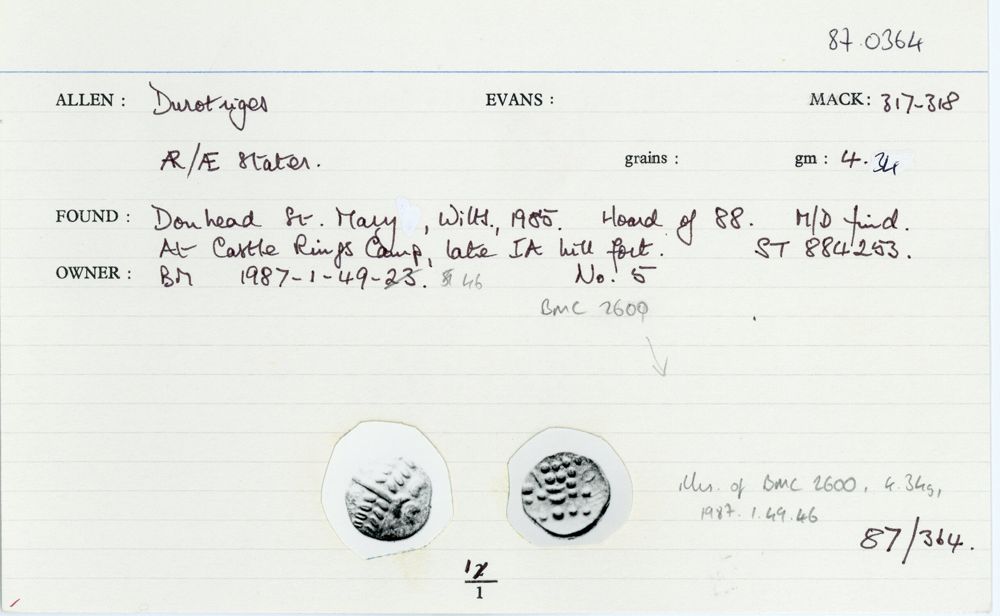 87.0364
ALLEN : Durotriges EVANS : MACK: 317-318
Æ/Æ Stater. grains : gm : 4.34
FOUND : Donhead St. Mary, Wilts., 1985. Hoard of 88. M/D find.
At Castle Rings Camp, late IA hill fort. ST 884253.
OWNER : BM 1987-1-49-23. 46 No. 5
BMC 2600
illus. of BMC 2600, 4.34g,
1987.1.49.46
87/364.
1
1